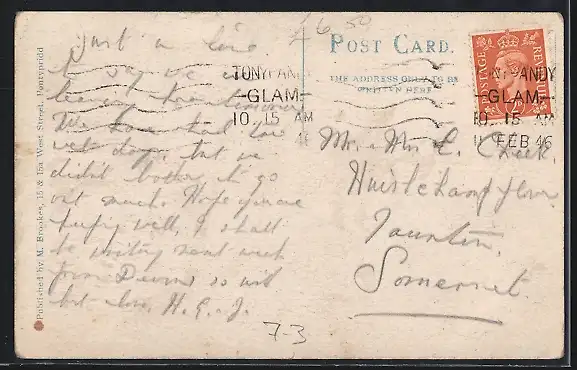 Just a line
to say we are
leaving
We have had
wet days, but we
didn't bother to go
out much. Hope you are
keeping well, I shall
be writing next week
from Devon so will
but love. H. G. J.
Published by M. Brookes, 15 & 16a West Street, Pontypridd
6.50
POST CARD.
THE ADDRESS ONLY TO BE
WRITTEN HERE.
TONYPANDY
GLAM
10. 15 AM
46
POSTAGE REVENUE
TONYPANDY
GLAM
10. 15 AM
FEB 46
Mr. & Mrs C. Cheek.
Huish Champflower
Taunton.
Somerset.
7-3